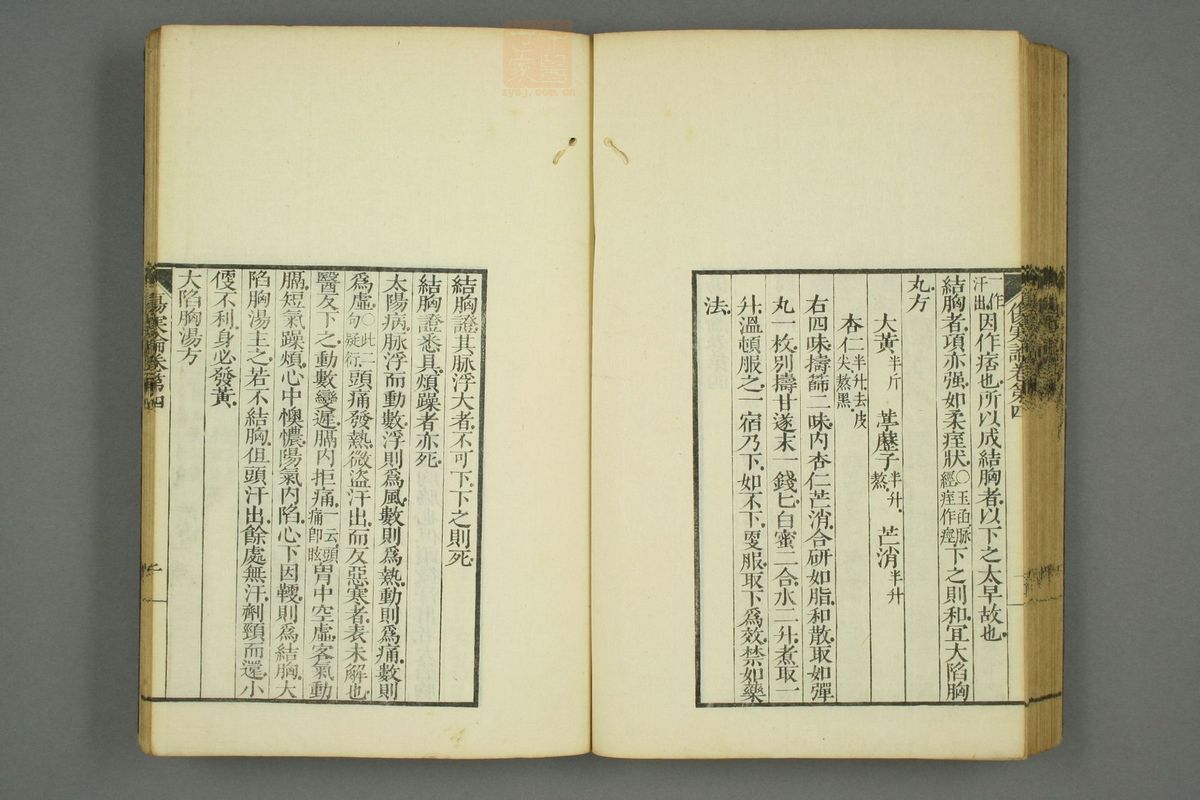 一作汗出因作痞也所以成結胸者以下之太早故也
結胸者項亦強如柔痓狀○玉函脉經痓作痙下之則和宜大陷胸
丸方
大黃半斤 葶藶子半升熬 芒消半升
杏仁半升去皮尖熬黑
右四味擣篩二味内杏仁芒消合研如脂和散取如彈
丸一枚別擣甘遂末一錢匕白蜜二合水二升煮取一
升溫頓服之一宿乃下如不下更服取下爲效禁如藥
法
結胸證其脉浮大者不可下下之則死
結胸證悉具煩躁者亦死
太陽病脉浮而動數浮則爲風數則爲熱動則爲痛數則
爲虛○此二句疑衍頭痛發熱微盜汗出而反惡寒者表未解也
醫反下之動數變遲膈内拒痛一云頭痛卽眩胃中空虛客氣動
膈短氣躁煩心中懊憹陽氣内陷心下因鞕則爲結胸大
陷胸湯主之若不結胸但頭汗出餘處無汗劑頸而還小
便不利身必發黃
大陷胸湯方
傷寒論卷第四
zysj.com.cn